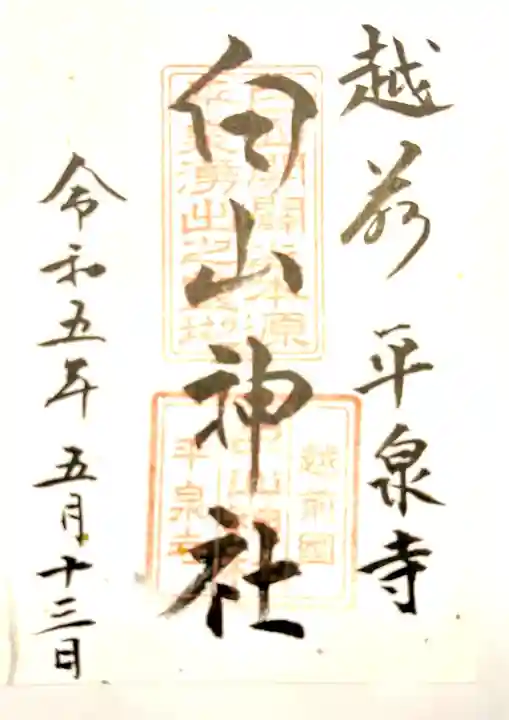 越前 平泉寺
白山神社
令和五年五月十三日
越前國
平泉寺